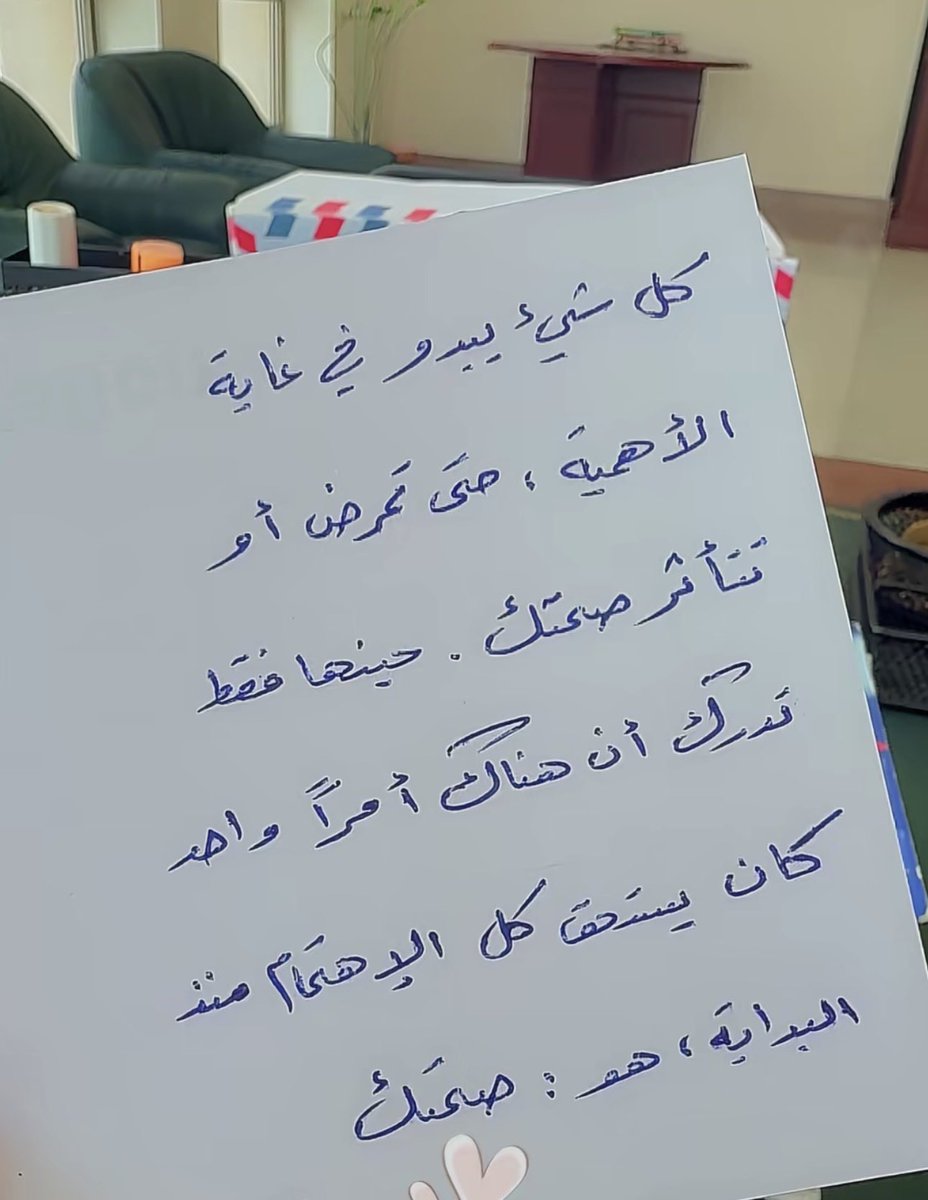 كل شيئ يبدو في غاية
الأهمية ، حتى تمرض أو
تتأثر صحتك . حينها فقط
تدرك أن هناك أمراً واحد
كان يستحق كل الإهتمام منذ
البداية ، هو : صحتك